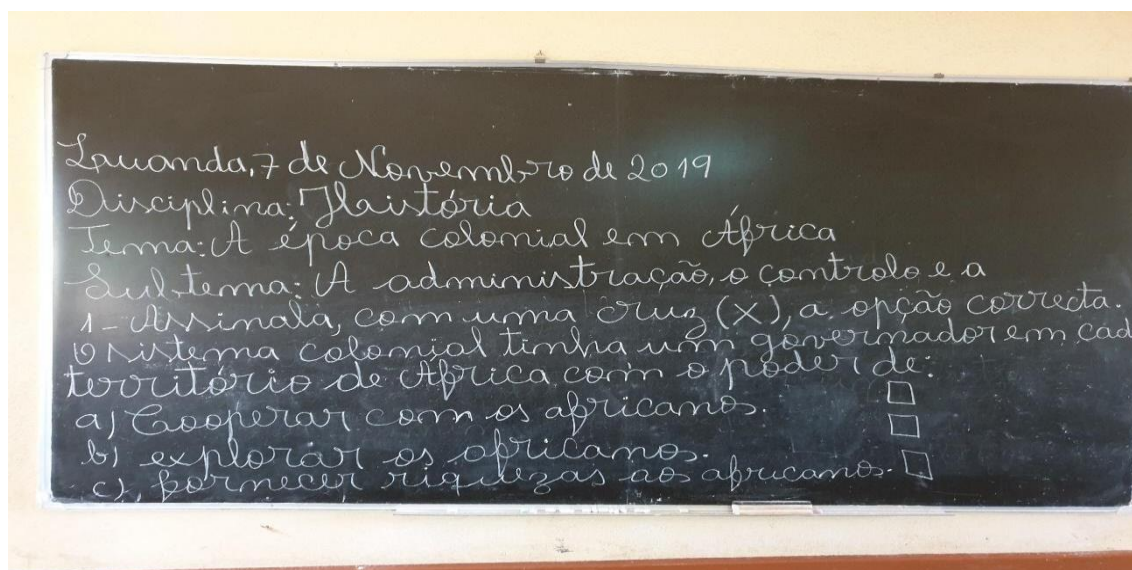 Luuanda, 7 de Novembro de 2019
Disciplina: História
Tema: A época colonial em África
Subtema: A administração, o controlo e a
1- Assinala, com uma cruz (x), a opção correcta.
O sistema colonial tinha um governador em cad
território de África com o poder de:
a) Cooperar com os africanos.
b) explorar os africanos.
c), fornecer riquezas aos africanos.